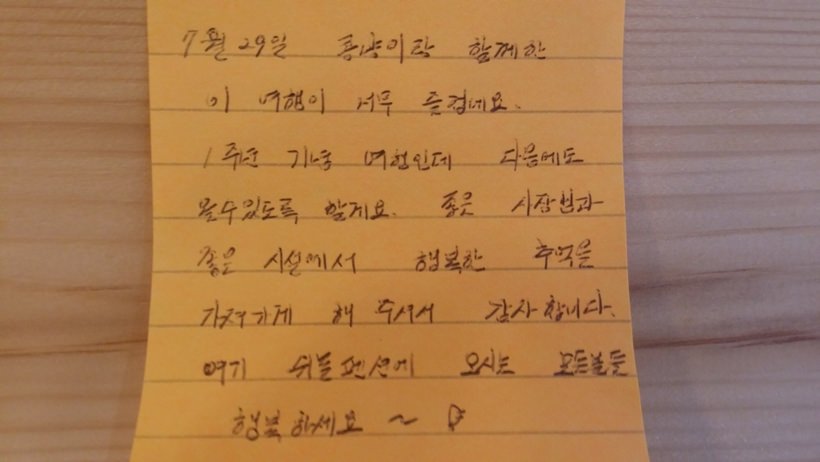 7월 29일 흥냥이랑 함께한
이 여행이 너무 즐겁네요.
1주년 기념 여행인데 다음에도
올수있도록 할게요. 좋은 사장님과
좋은 시설에서 행복한 추억을
가져가게 해 주셔서 감사합니다.
여기 쉬를펜션에 오시는 모든분들
행복하세요 ~